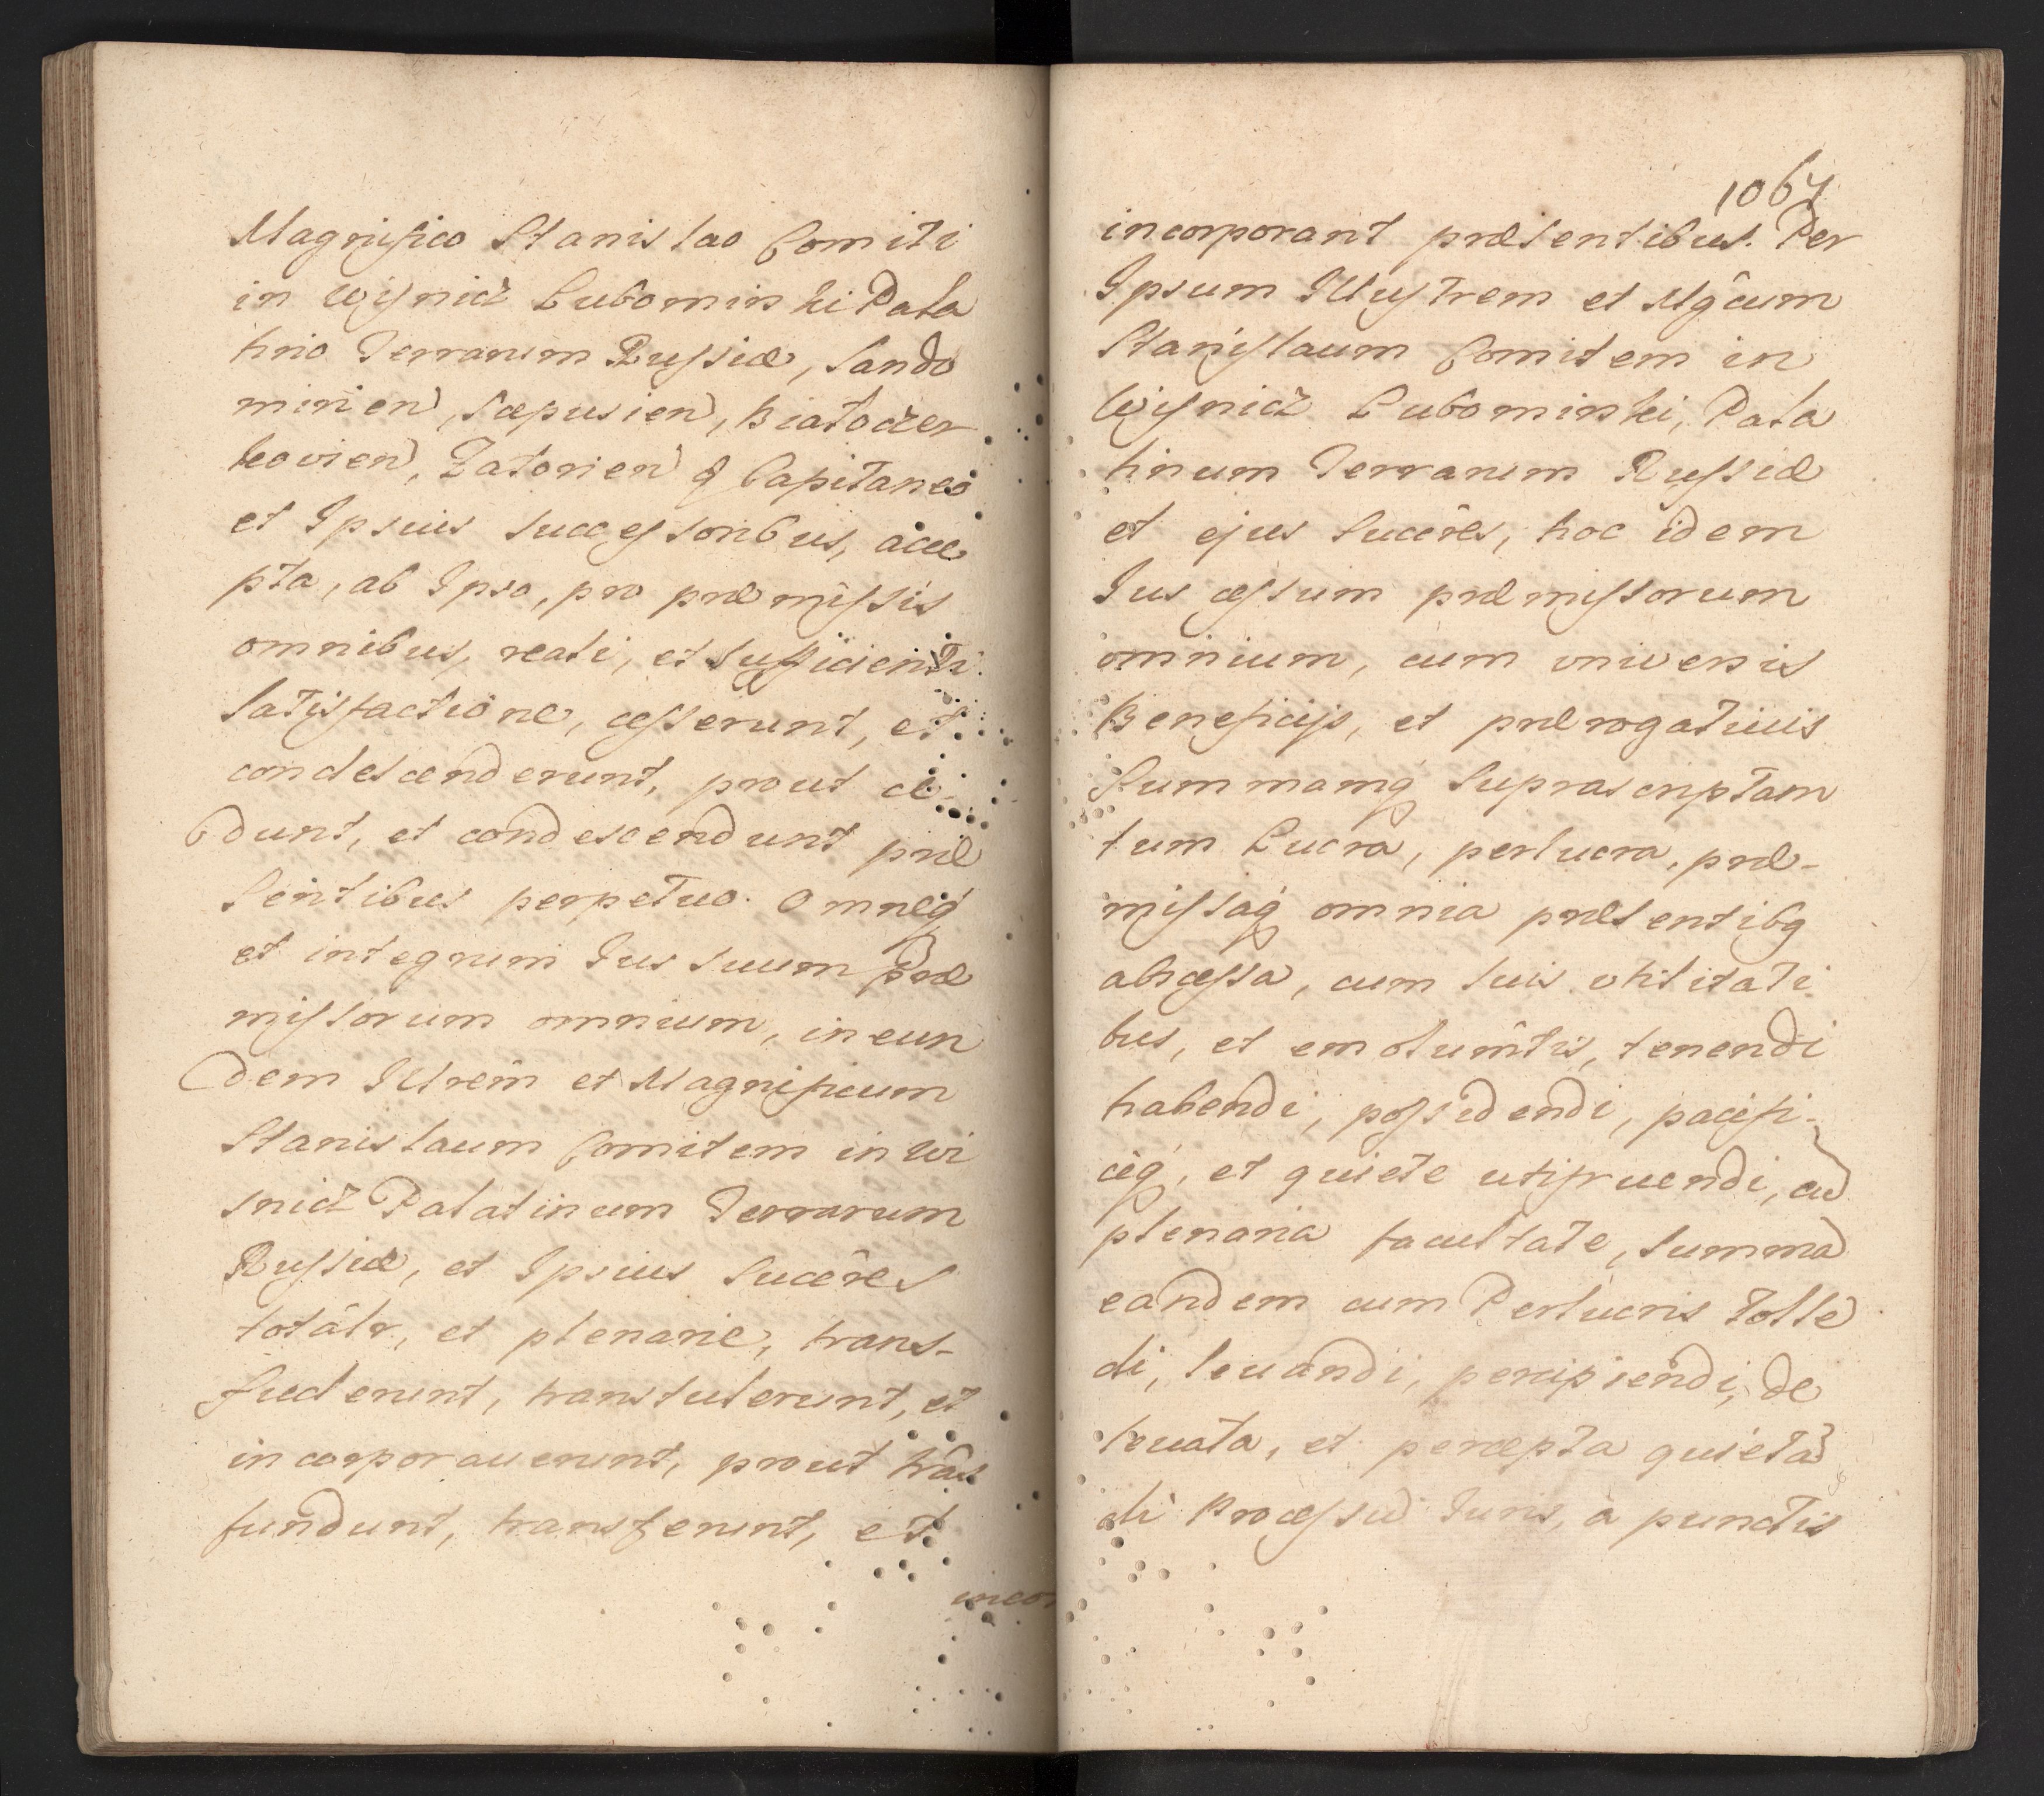 Magnifico Stanislao Comiti
in Wisnicz Lubomirski Pala
tino Terrarum Russiæ, Sando
mirien, Scepusien, Białocer
kovien, Zatorien q Capitaneo
et Ipsius successoribus, acce
pta, ab Ipso, pro præmissis
omnibus, reali, et sufficienti
satisfactione, cesserunt, et
condescenderunt, prout ce
dunt, et condescendunt præ
sentibus perpetuo. Omneq
et integrum Jus suum præ
missorum omnium, in eun
dem Illrêm et Magnificum
Stanislaum Comitem in Wi
snicz Palatinum Terrarum
Russiæ, et Ipsius Succêres
totâlr, et plenarie, trans-
fuderunt, transtulerunt, et
incorporauerunt, prout trās
fundunt, transferunt, et
incor
1067
incorporant præsentibus. Per
Ipsum Illustrem et Mgĉum
Stanislaum Comitem in
Wisnicz Lubomirski, Pala
tinum Terrarum Russiæ
et ejus Succêres, hoc idem
Jus cessum præmissorum
omnium, cum vniversis
Beneficijs, et prærogatiuis
Summamq suprascriptam
tum Lucra, perlucra, præ-
missaq omnia præsentibq
abscessa, cum suis vtilitati
bus, et emolumîtis, tenendi
habendi, possidendi, pacifi-
ceq, et quiete utifruendi, cū
plenaria facultate, summā
eandem cum Perlucris tollē
di, leuandi, percipiendi, de
leuata, et percepta quietā
di Processū Juris, à punctis